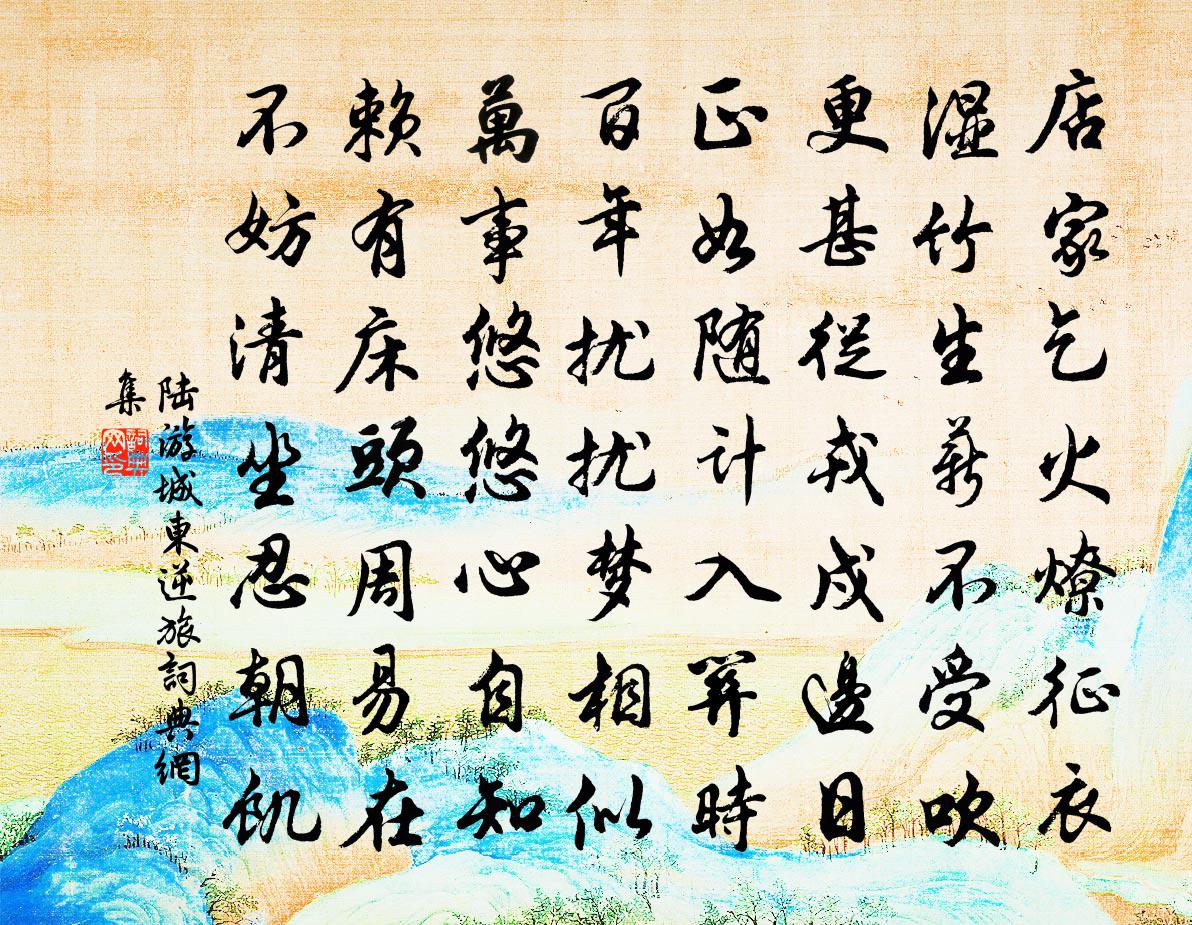 店家乞火燎征衣
湿竹生薪不受吹
更甚從戎戍邊日
正如随計入関時
百年扰扰梦相似
萬事悠悠心自知
赖有床頭周易在
不妨清坐忍朝飢
陆游城東逆旅詞典網
集